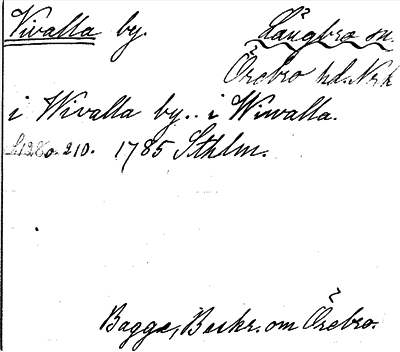 Vivalla by. Längbro sn.
Örebro hd. Nrk
i Wivalla by.. i Wiwalla.
S. 128 o. 210. 1785 Sthlm.
Bagge, Beskr. om Örebro.